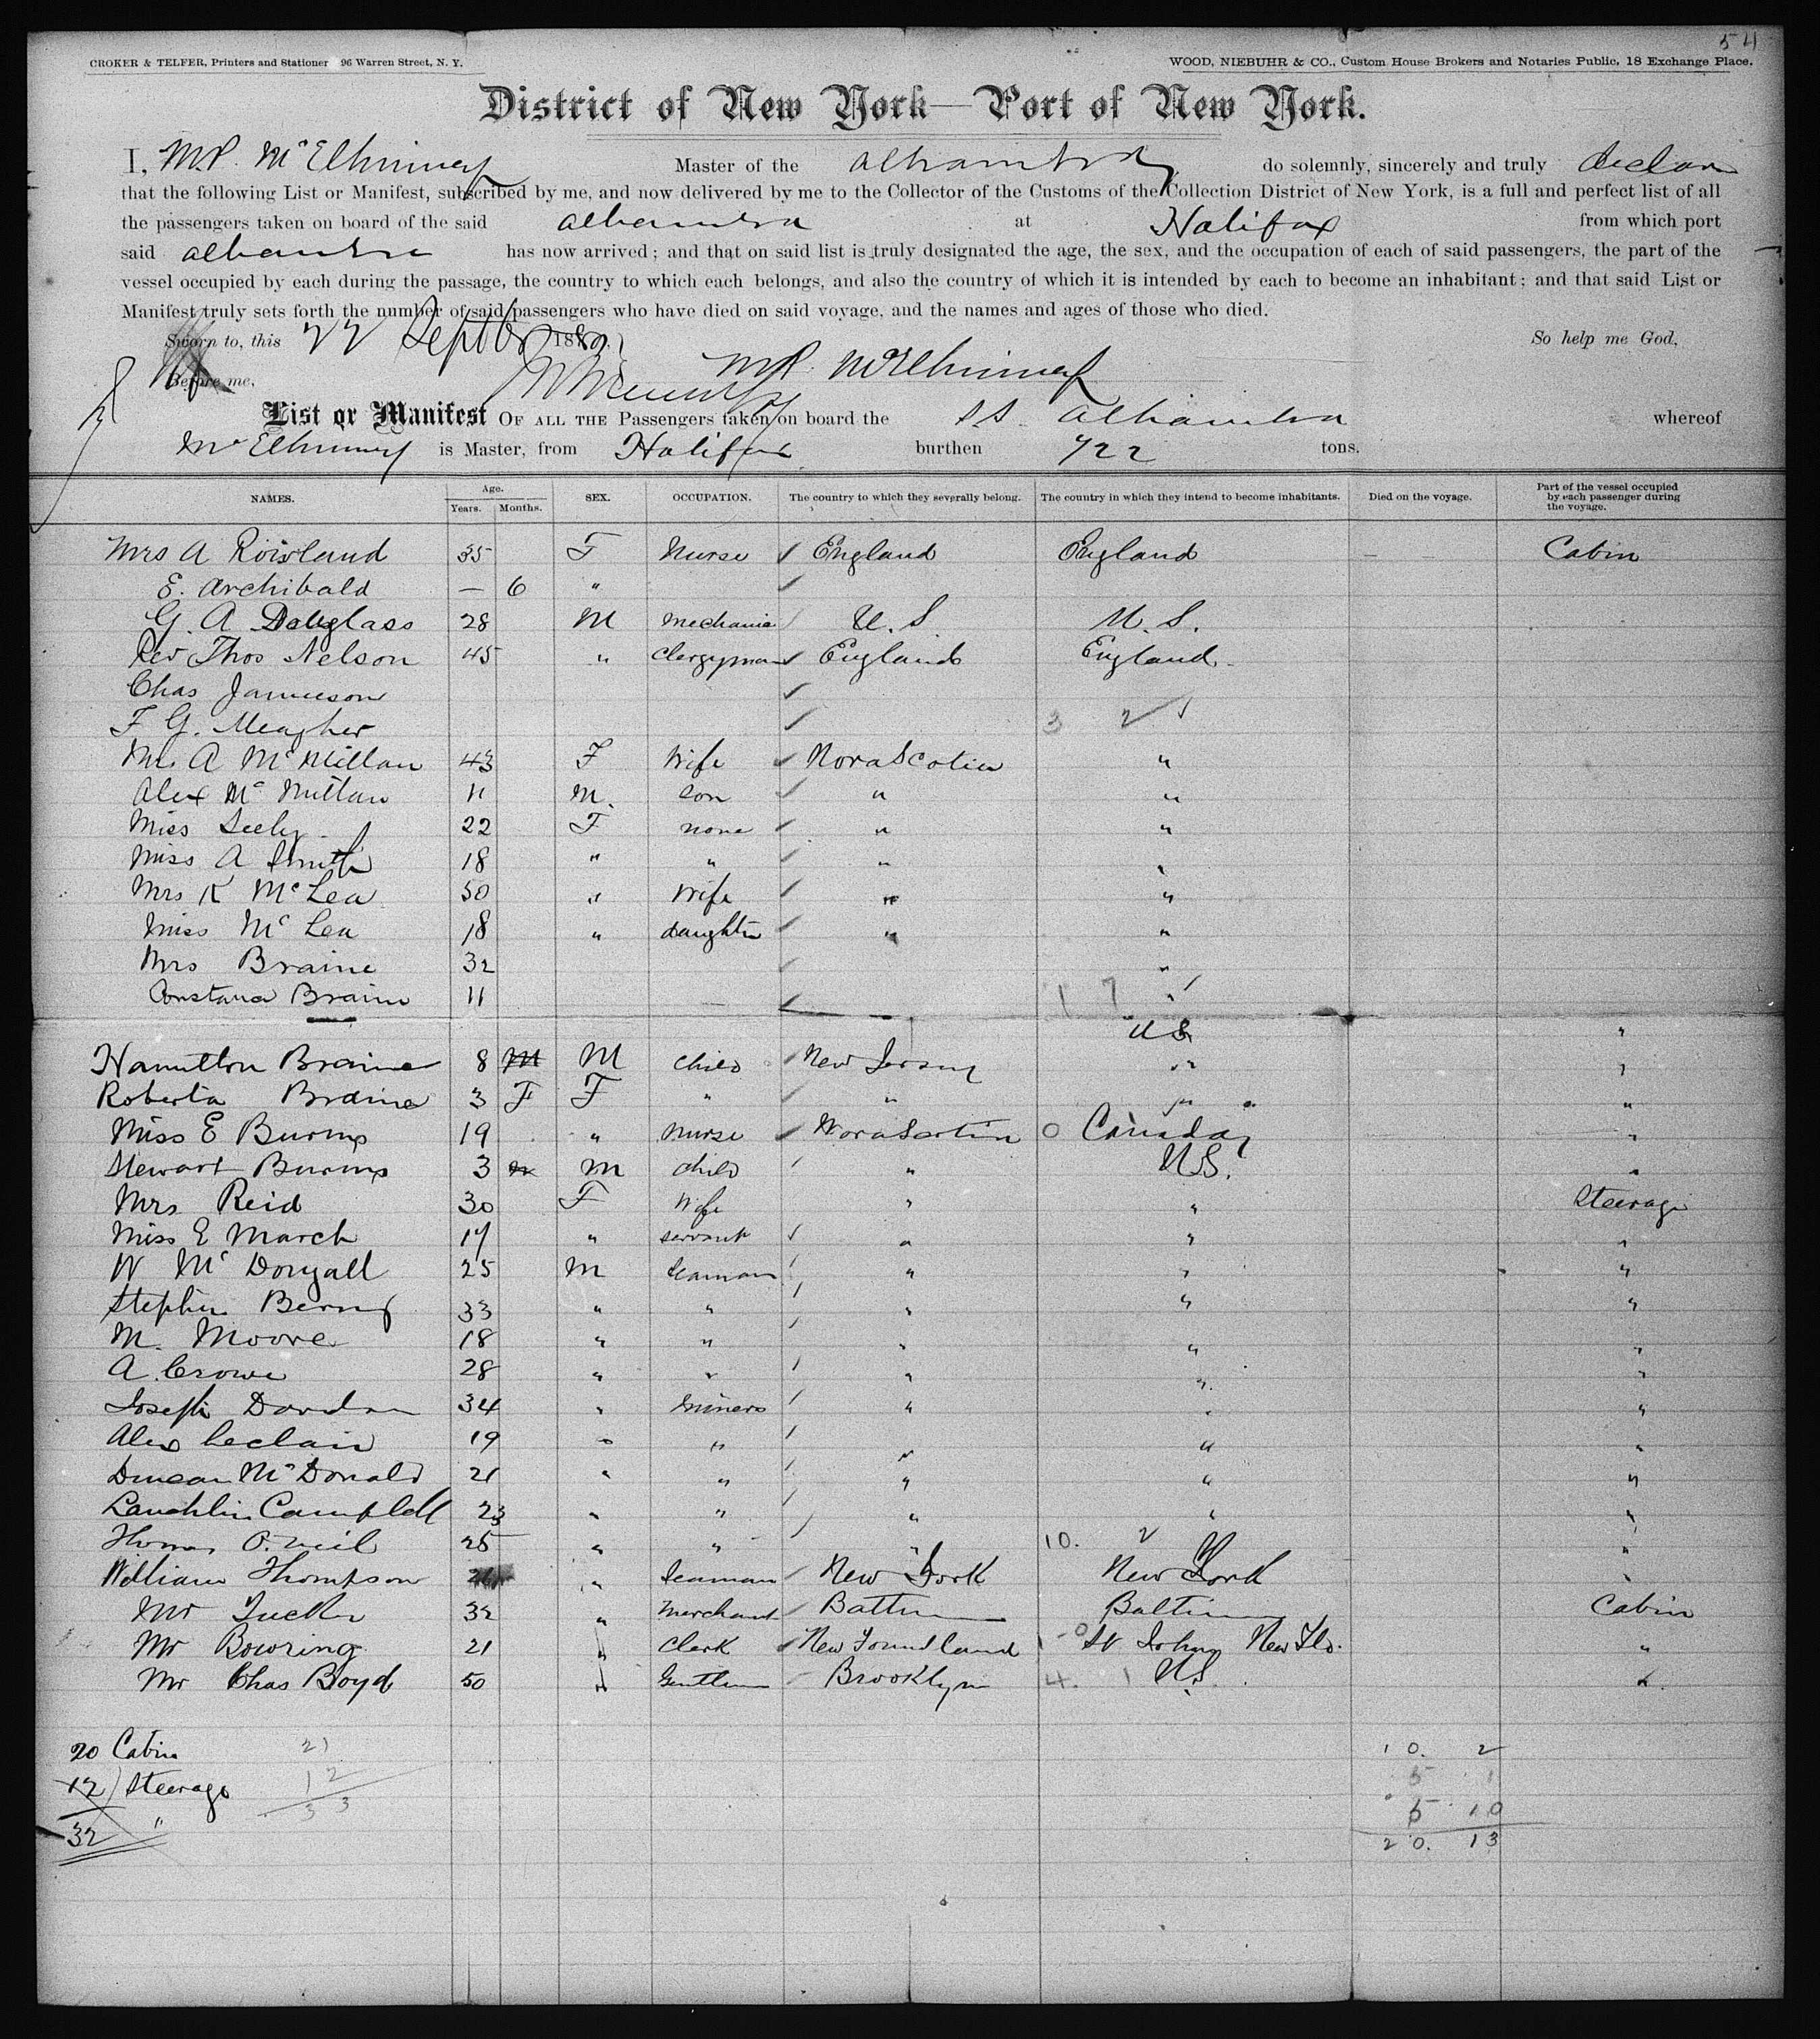 54
CROKER & TELFER, Printers and Stationer 96 Warren Street, N. Y. WOOD, NIEBUHR & CO., Custom House Brokers and Notaries Public, 18 Exchange Place.
District of New York—Port of New York.
I, M.P. McElhinney Master of the Alhambra do solemnly, sincerely and truly declare
that the following List or Manifest, subscribed by me, and now delivered by me to the Collector of the Customs of the Collection District of New York, is a full and perfect list of all
the passengers taken on board of the said Alhambra at Halifax from which port
said Alhambra has now arrived; and that on said list is truly designated the age, the sex, and the occupation of each of said passengers, the part of the
vessel occupied by each during the passage, the country to which each belongs, and also the country of which it is intended by each to become an inhabitant; and that said List or
Manifest truly sets forth the number of said passengers who have died on said voyage, and the names and ages of those who died.
Sworn to, this 22 Septbr 188 So help me God,
Before me, M.P. McElhinney
List or Manifest OF ALL THE Passengers taken on board the SS Alhambra whereof
McElhinney is Master, from Halifax burthen 722 tons.
NAMES. Age. Years. Months. SEX. OCCUPATION. The country to which they severally belong. The country in which they intend to become inhabitants. Died on the voyage. Part of the vessel occupied by each passenger during the voyage.
Mrs A Rowland 35 F Nurse England England — Cabin
E. Archibald — 6 "
G. A Douglass 28 M Mechanic U.S. U.S.
Rev Thos Nelson 45 " Clergyman England England
Chas Jamieson
F G. Meagher 3 2
Mrs A McMillan 43 F Wife Nova Scotia "
Alex McMillan 11 M. Son " "
Miss Seely 22 F none " "
Miss A Smith 18 " " " "
Mrs K McLea 50 " Wife " "
Miss McLea 18 " daughter " "
Mrs Braine 32 "
Constance Braine 11 1 7 "
US "
Hamilton Braine 8 M M Child New Jersey " "
Roberta Braine 3 F F " " " "
Miss E Burns 19 " Nurse Nova Scotia 0 Canada "
Stewart Burns 3 m M Child " U.S. "
Mrs Reid 30 F Wife " " Steerage
Miss E March 17 " Servant " " "
W McDougall 25 M Seaman " " "
Stephen 33 " " " " "
M. Moore 18 " " " " "
A. Crowe 28 " " " " "
Joseph 34 " Miners " " "
Alex Leclair 19 " " " " "
Duncan McDonald 21 " " " " "
Lauchlin Campbell 23 " " " " "
Thomas O.Neil 25 " " " 10. 2 " "
William Thompson " Seaman New York New York "
Mr Tucker 32 " Merchant Cabin
Mr Bowring 21 " Clerk New Foundland 1-0 St Johns New Fld. "
Mr Chas Boyd 50 " Gentlem Brooklyn 4. 1 U.S. "
20 Cabin 21 10. 2
12 Steerage 12 5 1
32 " 33 5 10
20. 13